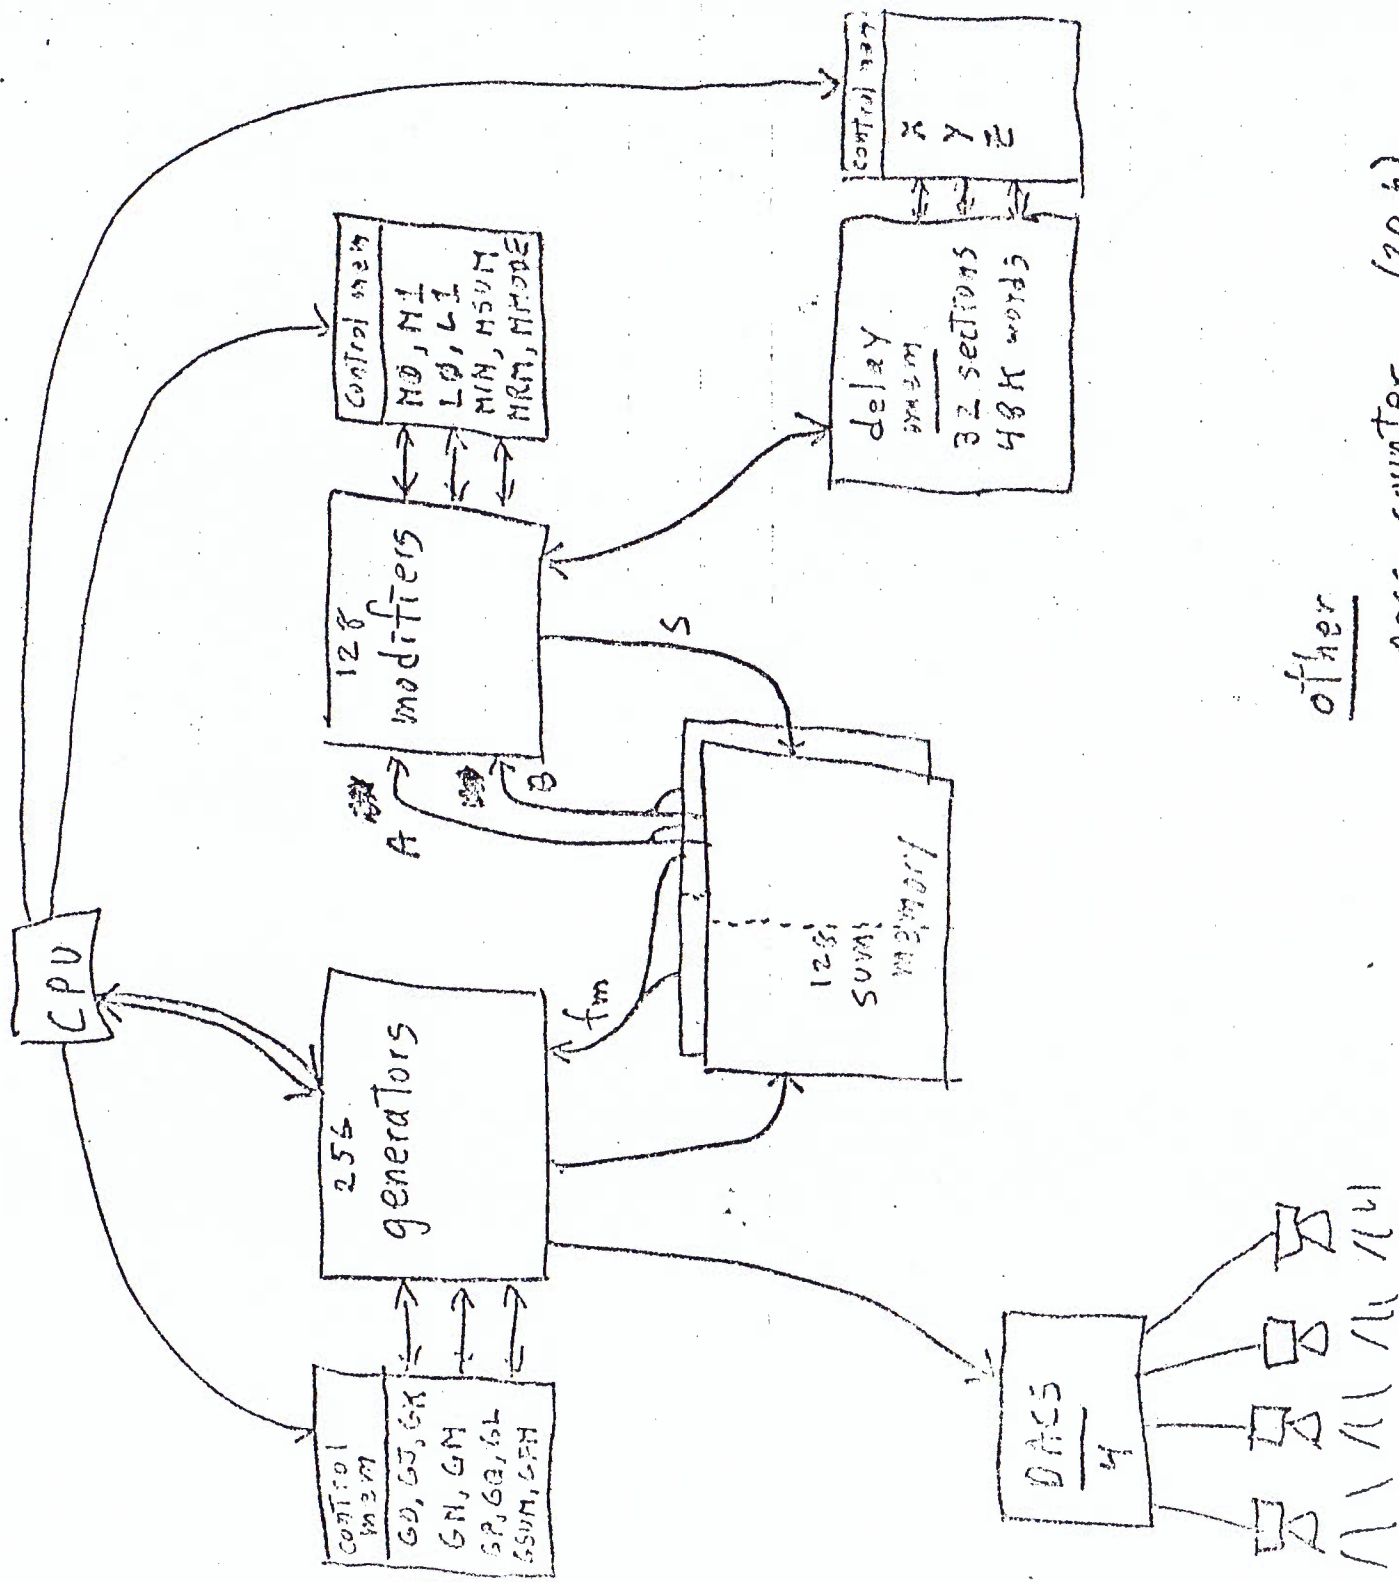 CPU
control
mem
GO, GJ, GK
GN, GM
GP, GQ, GL
GSUM, GFM
256
generators
fm
A
B
128
modifiers
S
control mem
MØ, M1
LØ, L1
MIN, MSUM
MRM, MMODE
128
sum
memory
delay
mem
32 sections
48K words
control mem
X
Y
Z
DACS
4
other
pass counter (20 b)